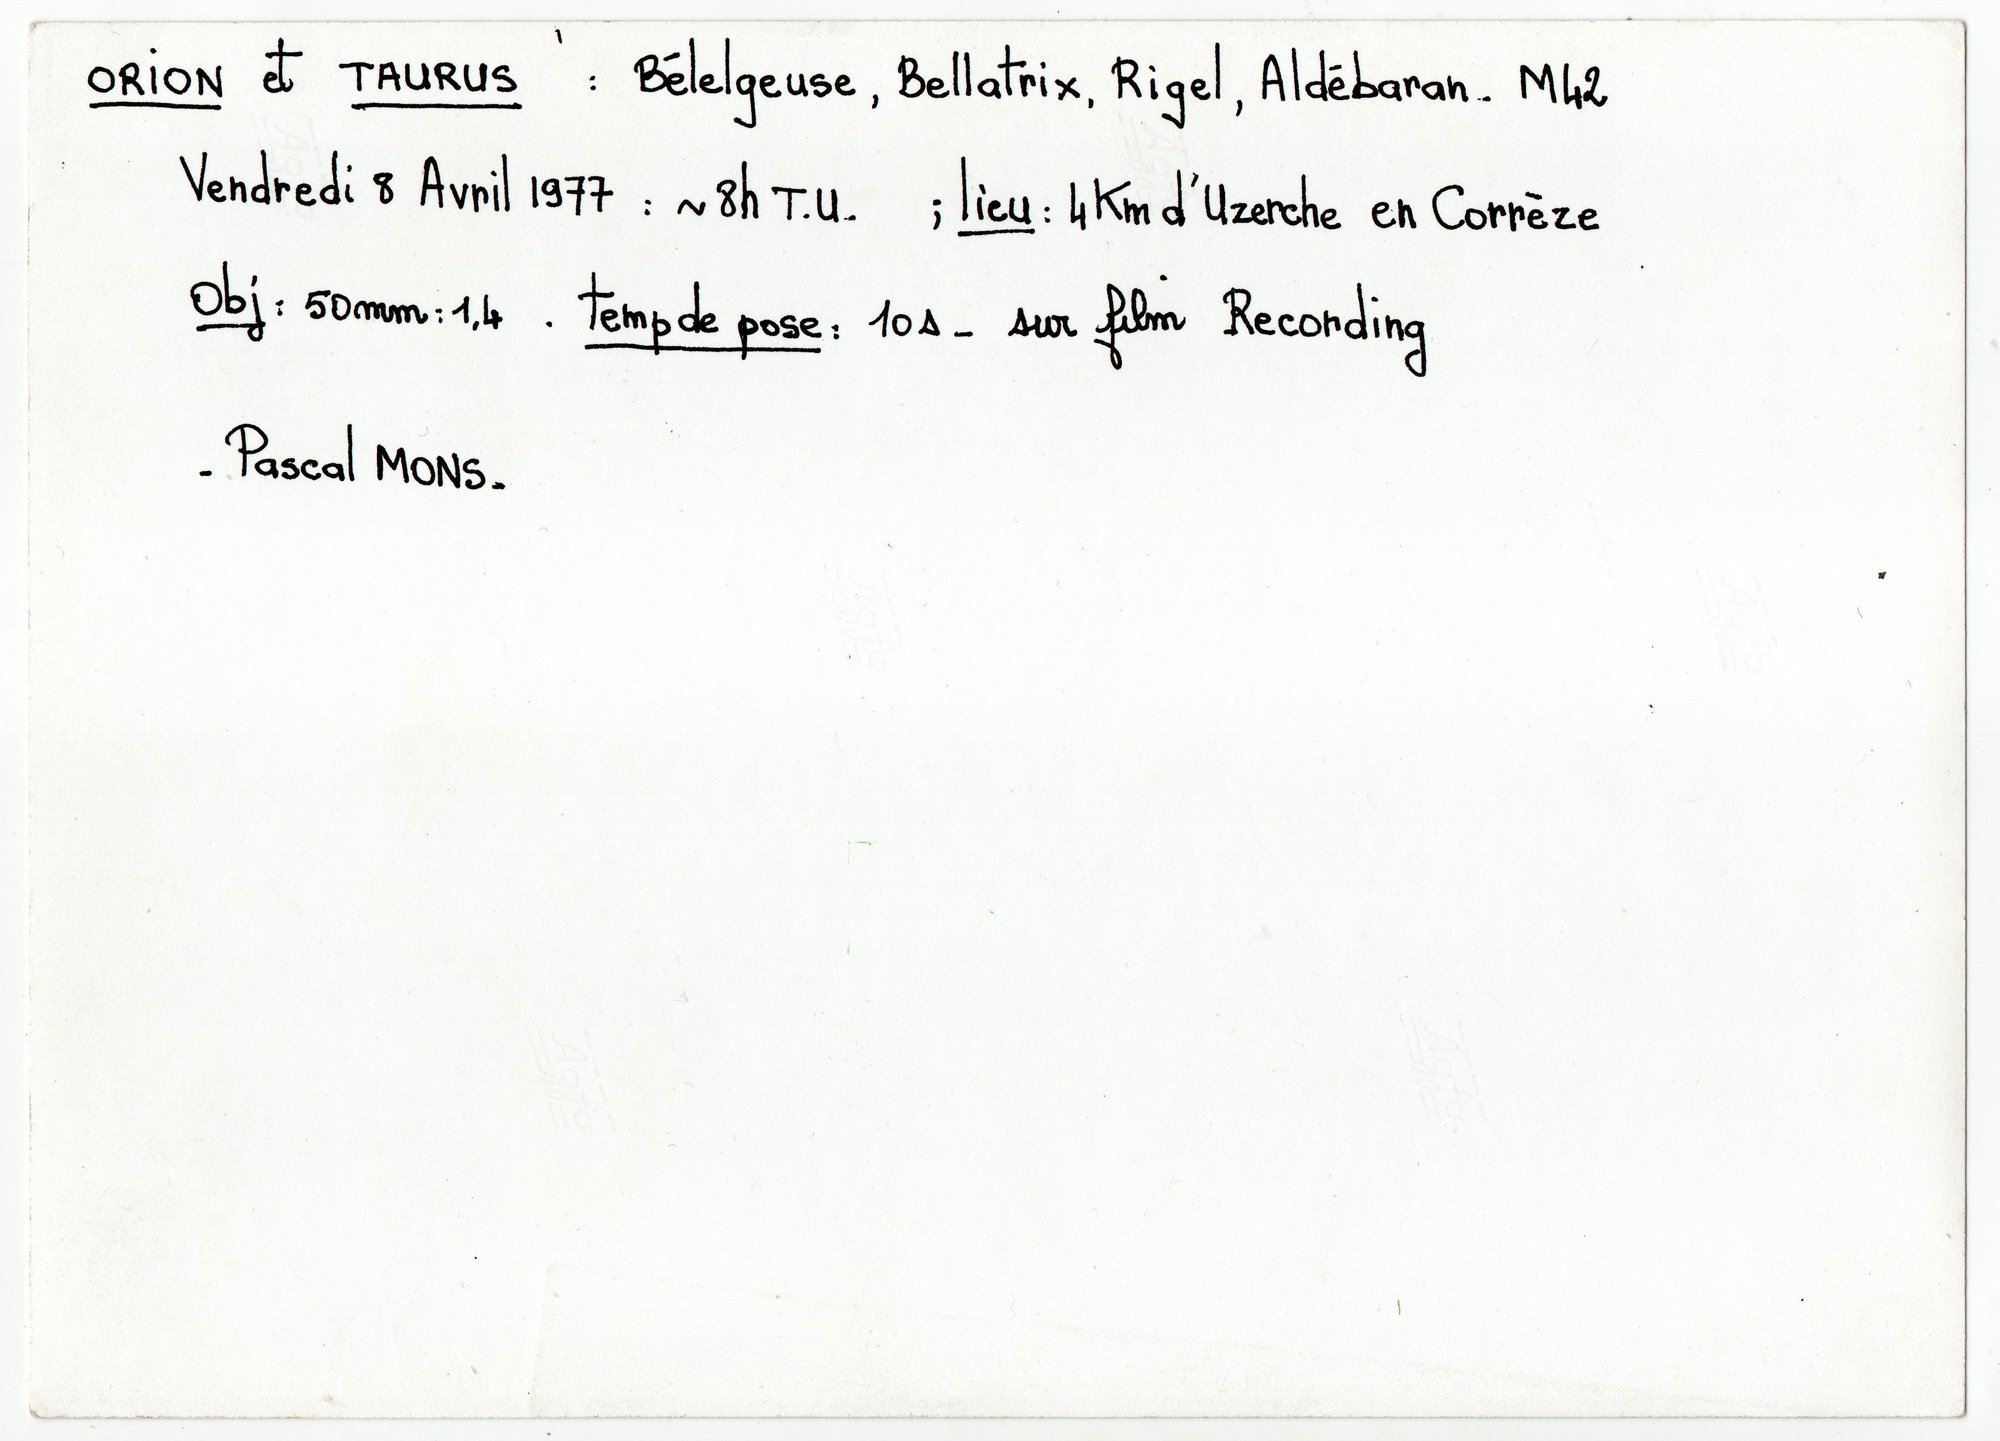 ORION et TAURUS : Bélelgeuse, Bellatrix, Rigel, Aldébaran. M42
Vendredi 8 Avril 1977 : ~8h T.U. ; lieu : 4Km d'Uzerche en Corrèze
Obj : 50mm : 1,4 . temp de pose : 10s - sur film Recording
- Pascal MONS -